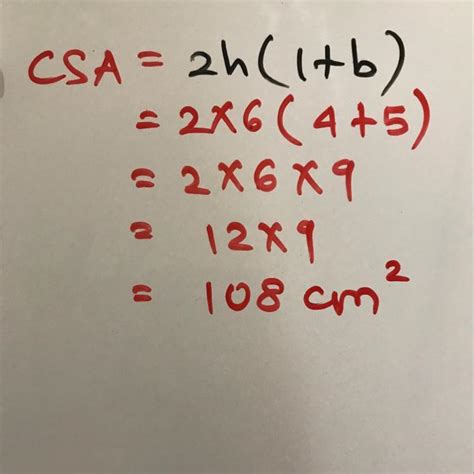 CSA = 2h(l+b)
= 2×6(4+5)
= 2×6×9
= 12×9
= 108 cm²